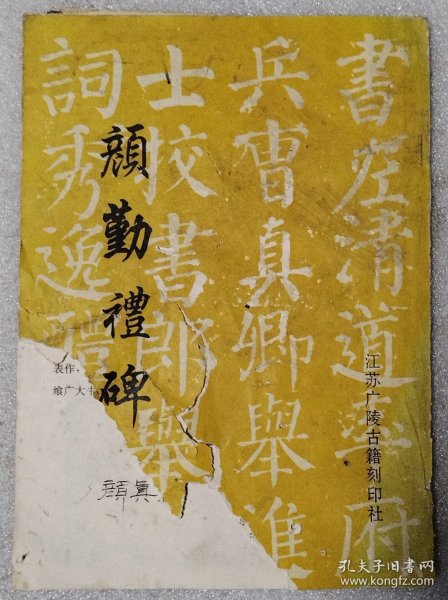 書左清道率府
兵曹真卿舉進
士校書郎舉
詞秀逸
顏勤禮碑
江苏广陵古籍刻印社
表作，
飨广大十
顏真
孔夫子旧书网
www.kongfz.com